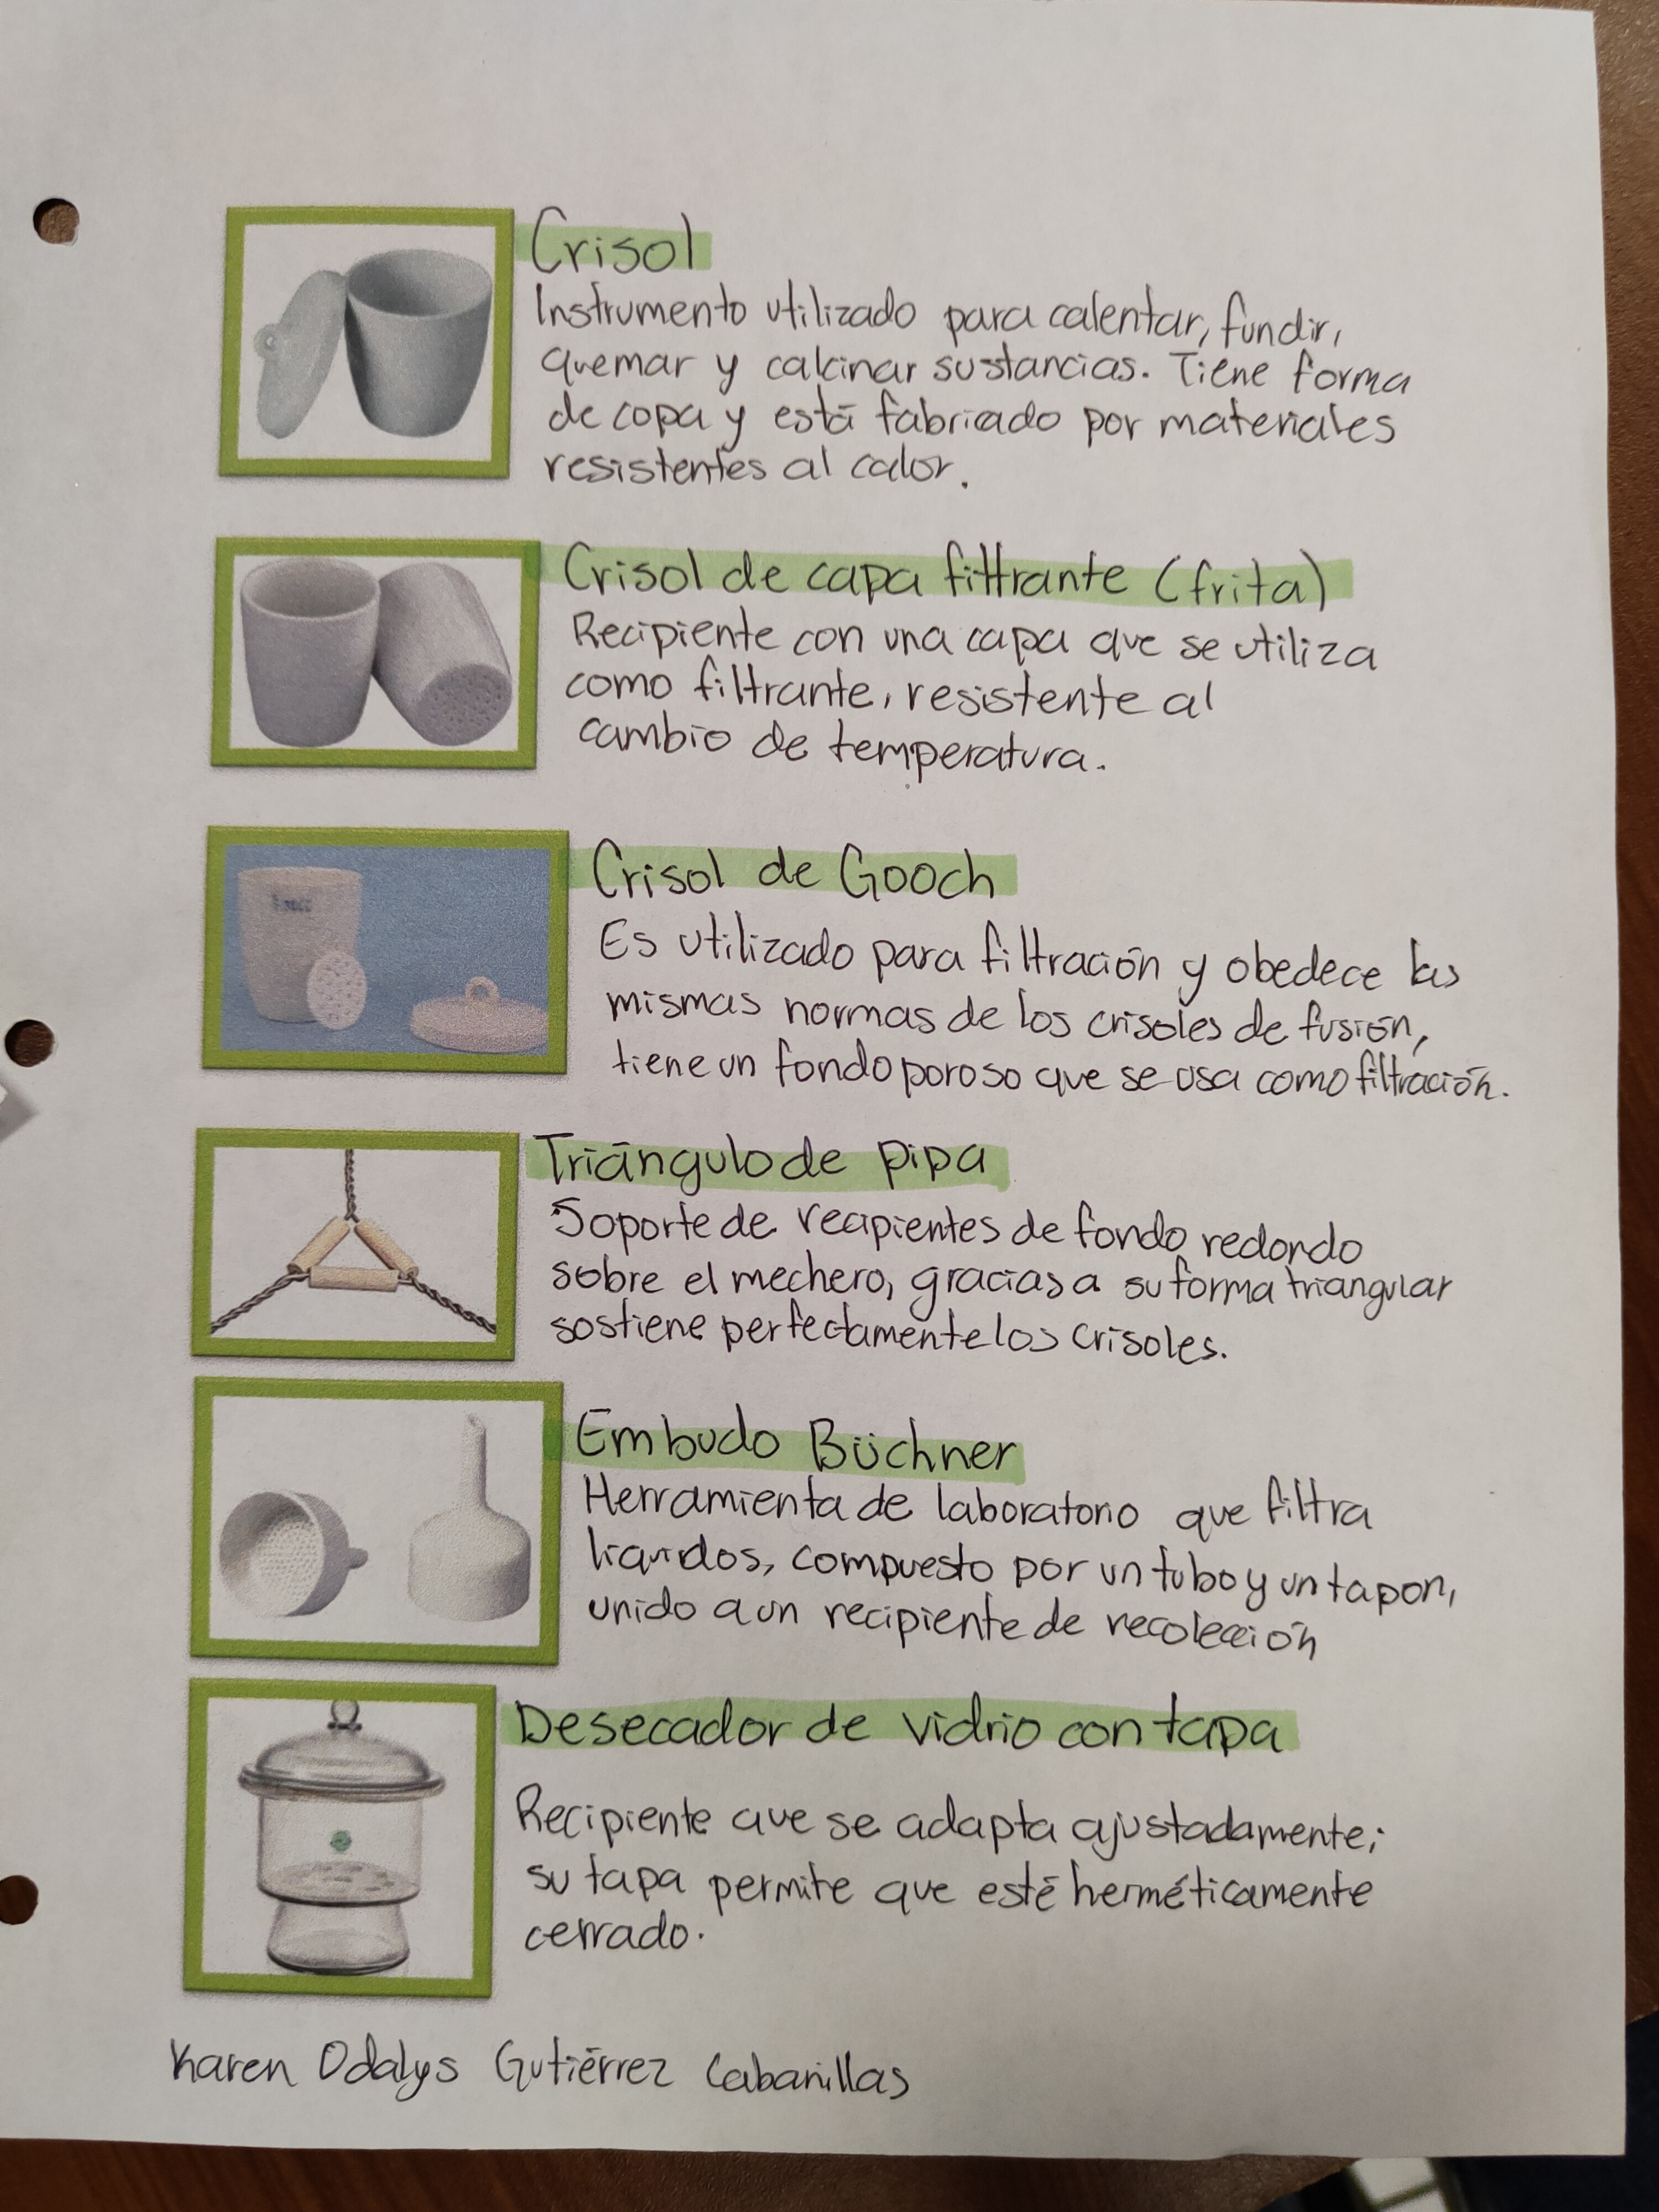 Crisol
Instrumento utilizado para calentar, fundir,
quemar y calcinar sustancias. Tiene forma
de copa y está fabricado por materiales
resistentes al calor.
Crisol de capa filtrante (frita)
Recipiente con una capa que se utiliza
como filtrante, resistente al
cambio de temperatura.
Crisol de Gooch
Es utilizado para filtración y obedece las
mismas normas de los crisoles de fusión,
tiene un fondo poroso que se usa como filtración.
Triángulo de pipa
Soporte de recipientes de fondo redondo
sobre el mechero, gracias a su forma triangular
sostiene perfectamente los crisoles.
Embudo Büchner
Herramienta de laboratorio que filtra
liquidos, compuesto por un tubo y un tapon,
unido a un recipiente de recolección
Desecador de vidrio con tapa
Recipiente que se adapta ajustadamente;
su tapa permite que esté herméticamente
cerrado.
Karen Odalys Gutiérrez Cabanillas